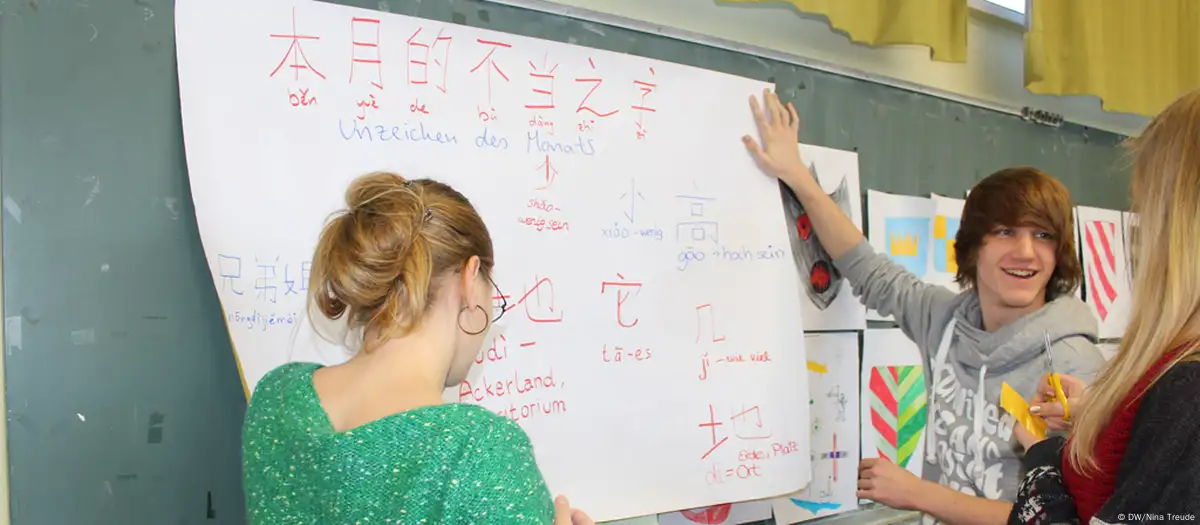 本月的不当之字
běn yuè de bù dàng zhī zì
Unzeichen des Monats
少
shǎo-
wenig sein
小 高
xiǎo-wenig gāo→hoch sein
兄弟
也 它 几
tā-es jǐ-wie viel
dì -
Ackerland,
地
Erde, Platz
dì=Ort
© DW/Nina Treude